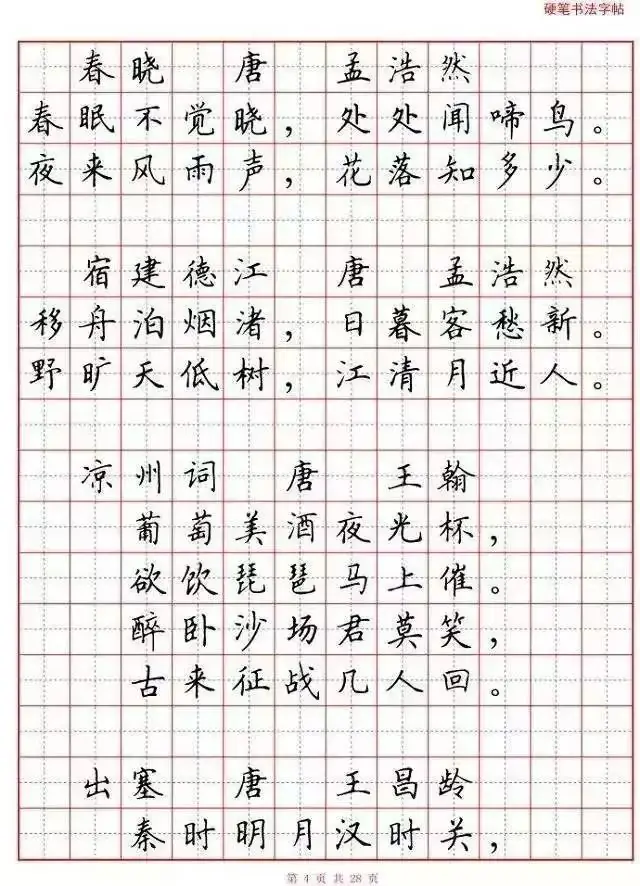 硬笔书法字帖
春晓 唐 孟浩然
春眠不觉晓，处处闻啼鸟。
夜来风雨声，花落知多少。
宿建德江 唐 孟浩然
移舟泊烟渚，日暮客愁新。
野旷天低树，江清月近人。
凉州词 唐 王翰
葡萄美酒夜光杯，
欲饮琵琶马上催。
醉卧沙场君莫笑，
古来征战几人回。
出塞 唐 王昌龄
秦时明月汉时关，
第 4 页 共 28 页